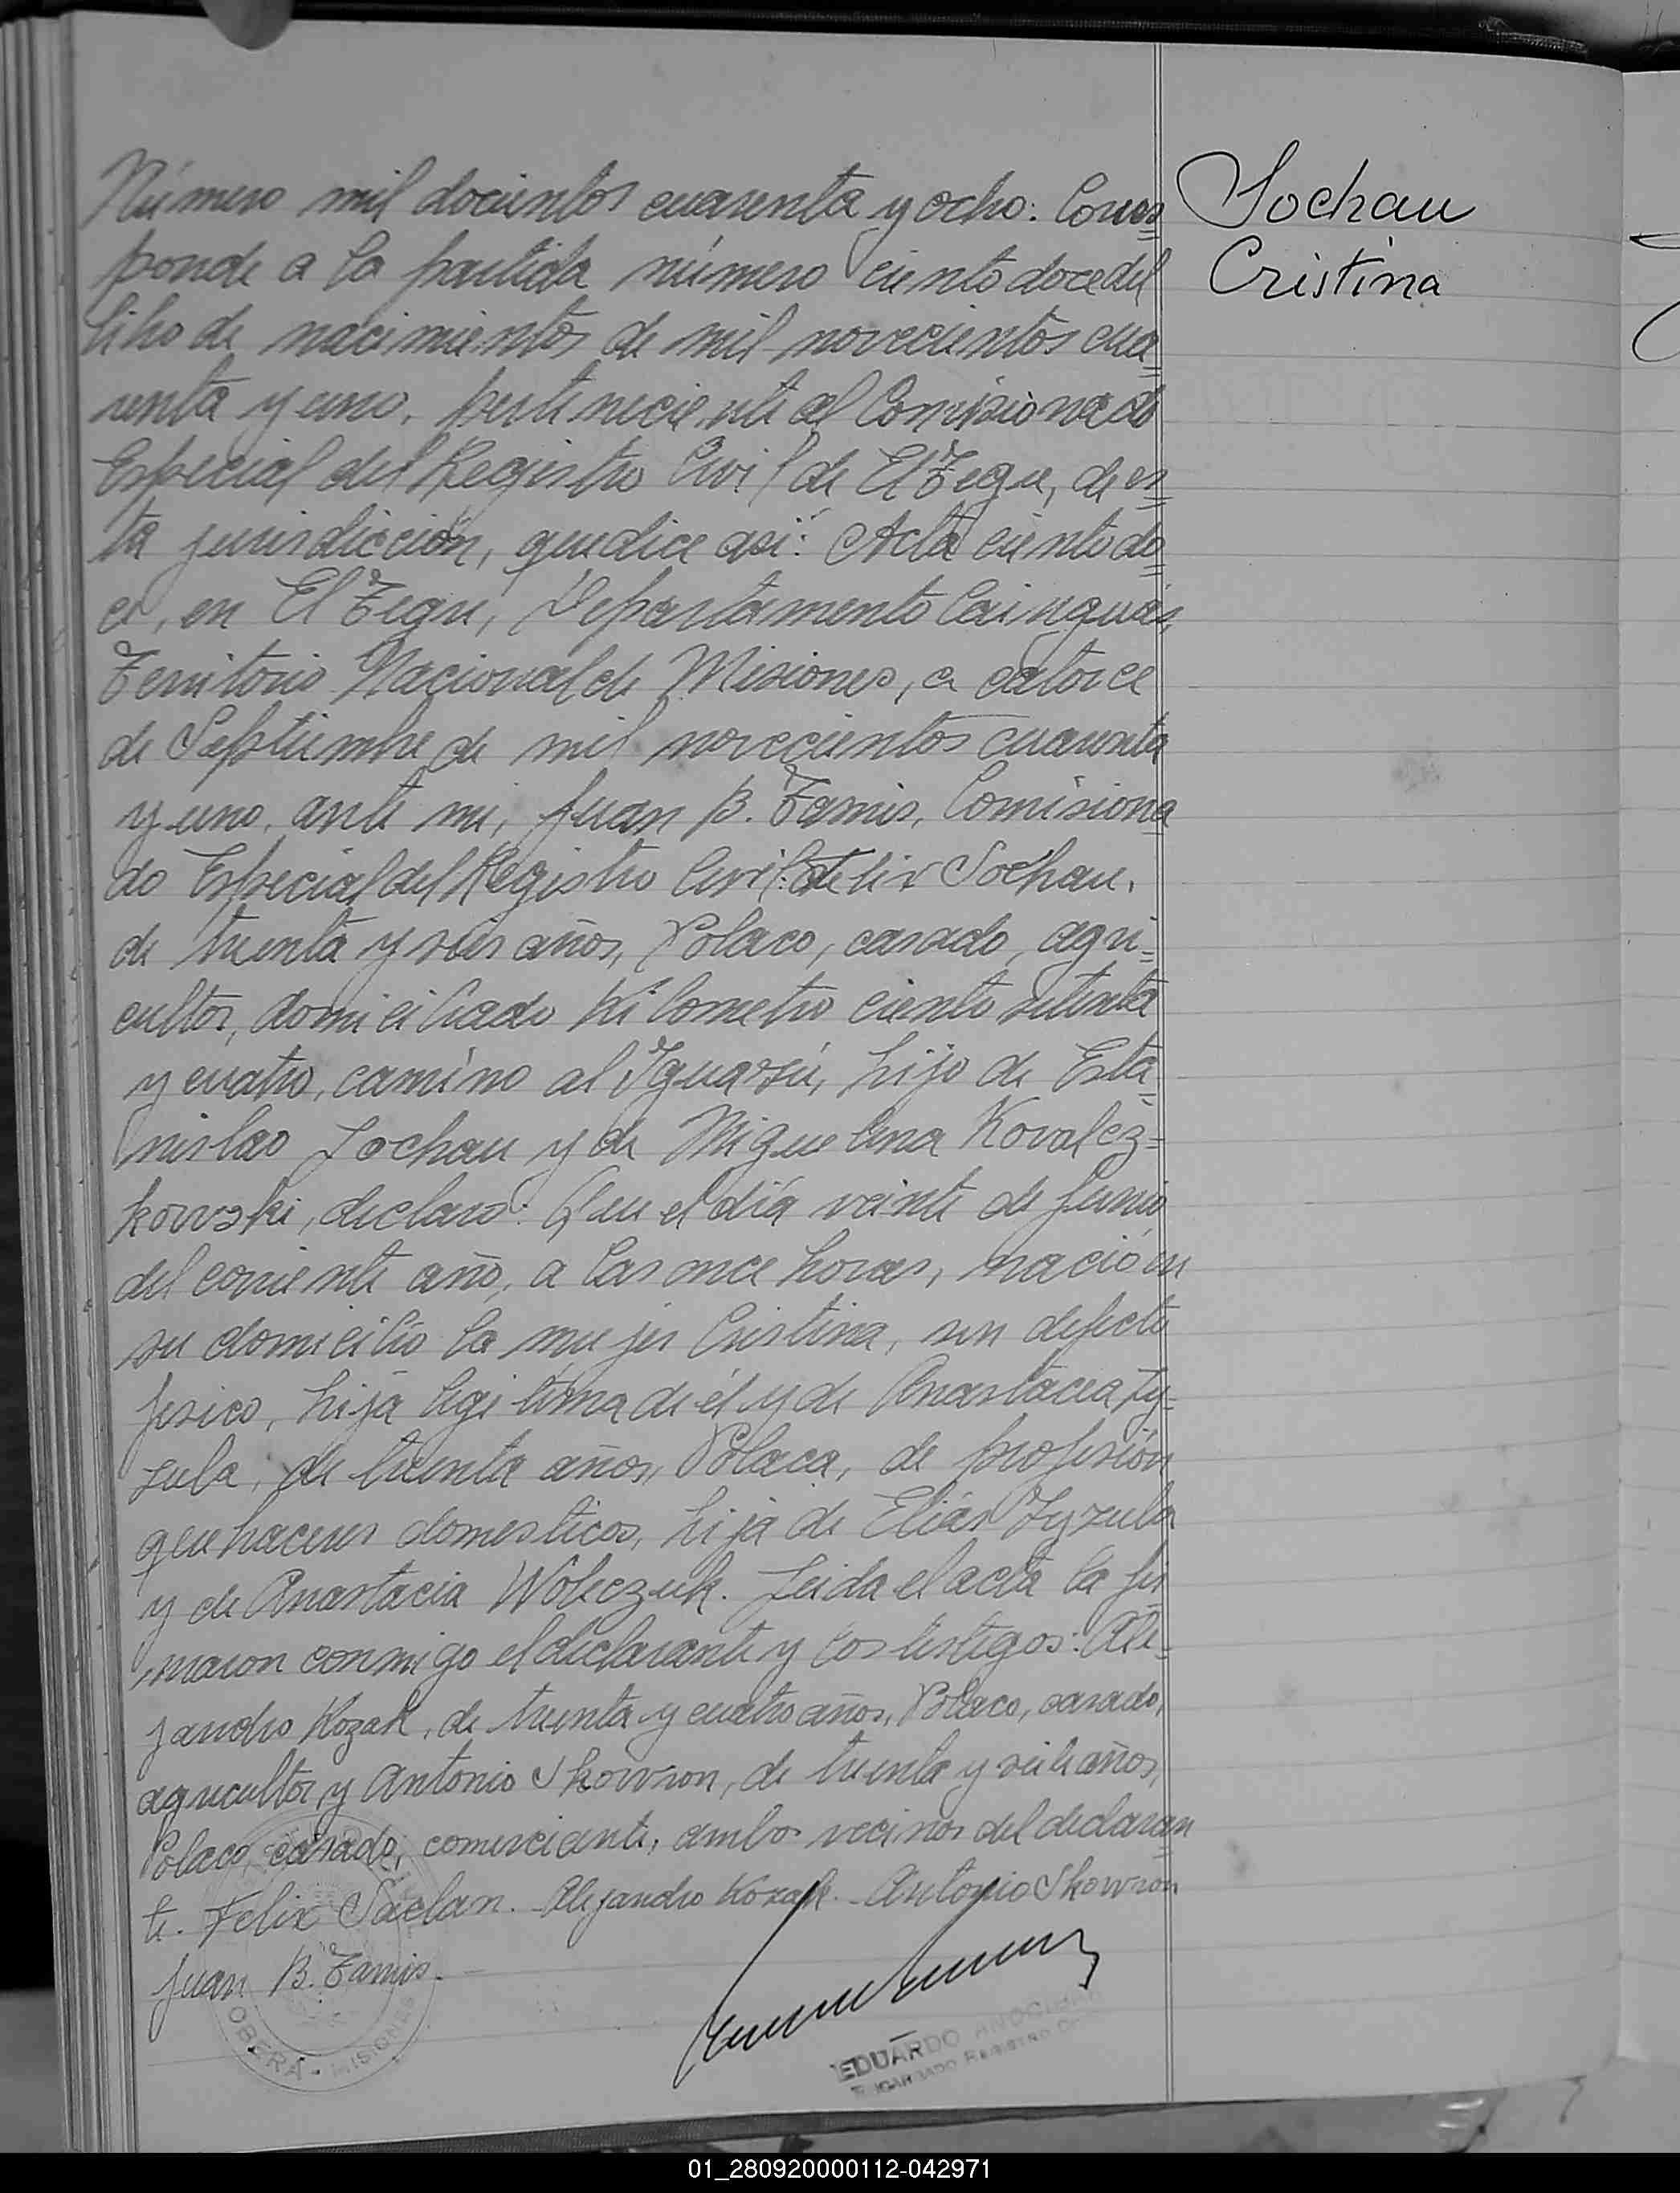 Número mil docientos cuarenta y ocho: Corres
ponde a la partida número ciento doce del
libro de nacimientos de mil novecientos cua
renta y uno, perteneciente al Comisionado
Especial del Registro Civil de El Tegu, de es
ta jurisdicción, que dice asi: Acta ciento do
ce, en El Tegú, Departamento Cainguás,
Territorio Nacional de Misiones, a catorce
de Septiembre de mil novecientos cuarenta
y uno, ante mi, Juan B. Tamis, Comisiona
do Especial del Registro Civil: Felix Sochau,
de treinta y seis años, Polaco, casado, agri=
cultor, domiciliado Kilometro ciento setenta
y cuatro, camino al Iguazú, hijo de Esta=
nislao Sochau y de Miguelina Kovalcz=
kowski, declaro: Que el día veinte de Junio
del corriente año, a las once horas, nació en
su domicilio la mujer Cristina, sin defecto
fisico, hija legitima de él y de Anastacia Zy=
zula, de treinta años, Polaca, de profesión
quehaceres domesticos, hija de Elías Zyzula
y de Anastacia Woleczuk. Leida el acta la fir
maron conmigo el declarante y los testigos: Ale=
jandro Kozak, de treinta y cuatro años, Polaco, casado,
agricultor y Antonio Skowron, de treinta y siete años,
Polaco, casado, comerciante, ambos vecinos del declaran
te. Felix Saclan. Alejandro Kozak. Antonio Skowron
Juan B. Tamis.
Sochau
Cristina
OBERÁ - MISIONES
EDUARDO
01_280920000112-042971